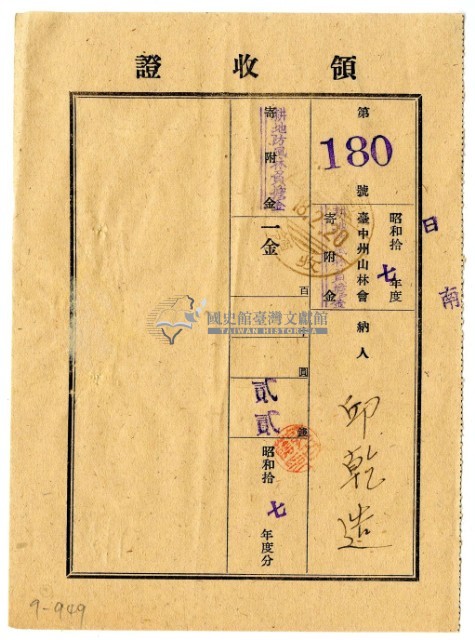 領收證
第
180
號
昭和拾七年度
臺中州山林會
寄附金
納人
邱乾造
日南
18.2.20
收
耕地防風林負擔金
寄附金
一金
百
圓
貳
貳
錢
昭和拾七年度分
國史館臺灣文獻館
TAIWAN HISTORICA
9-949